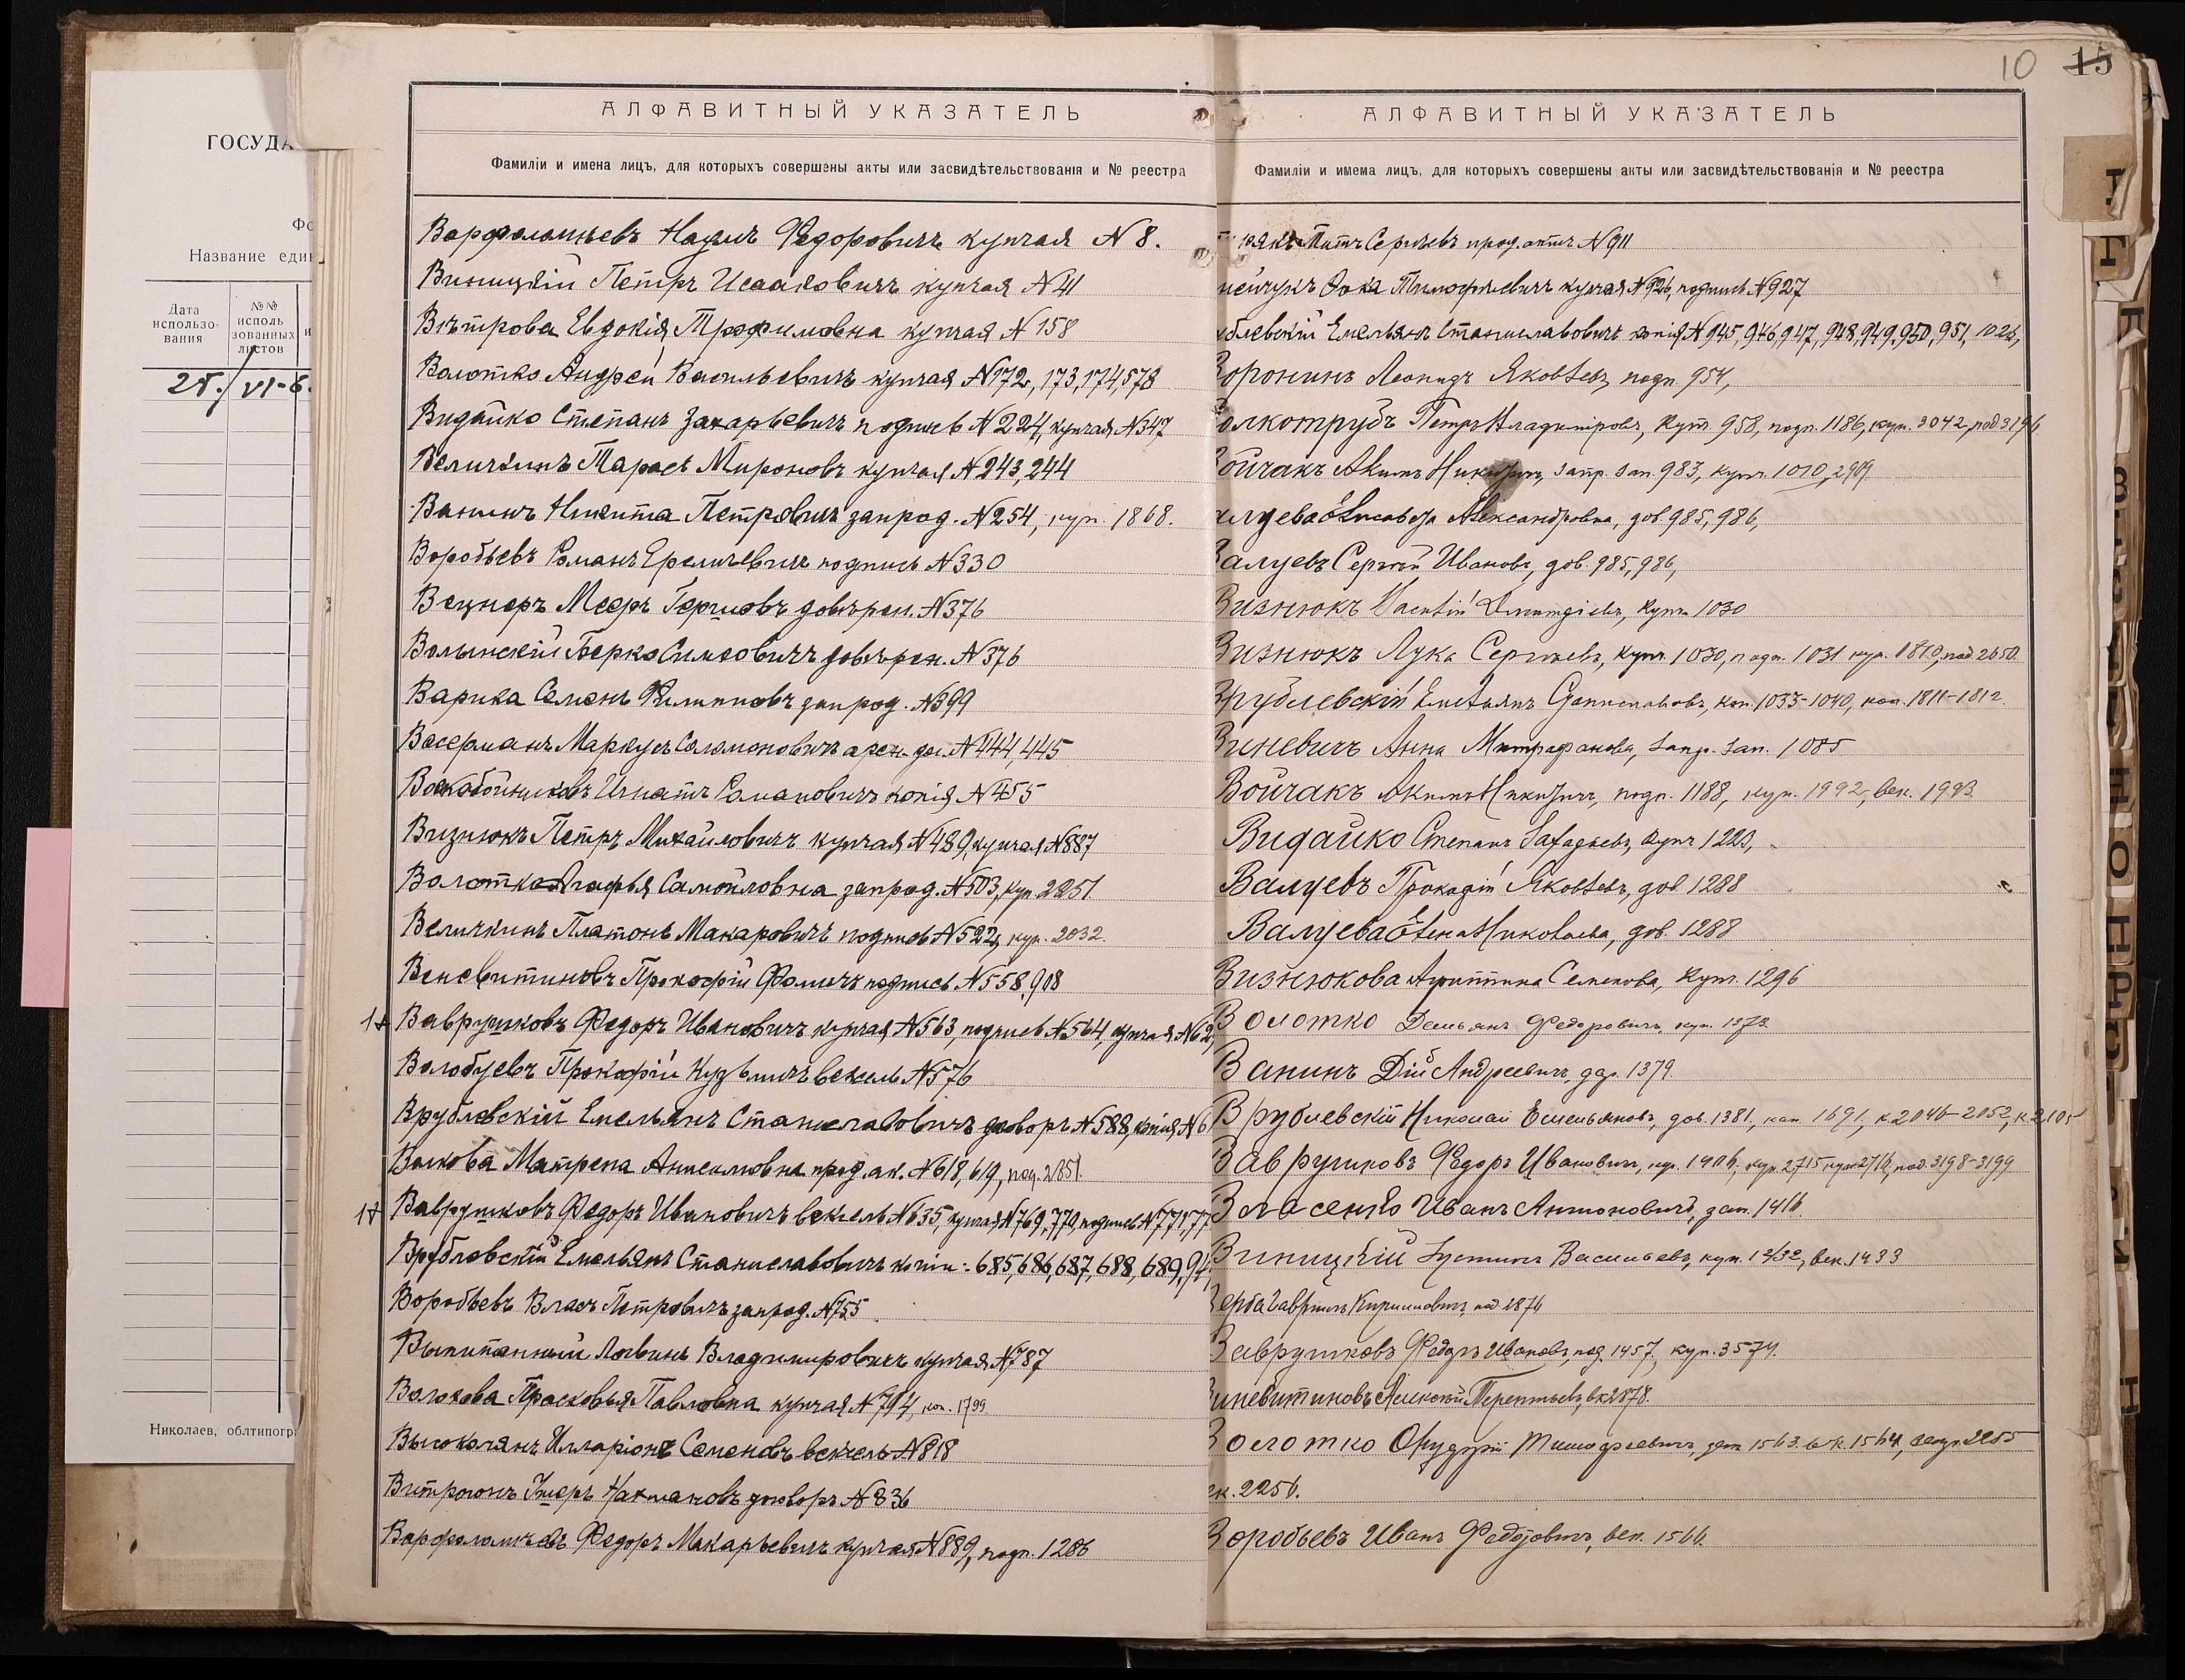 ГОСУДА
Фо
Название един
Дата использо-вания
№№ исполь зованных листов
и
25. VI-6.
Николаев, облтипогр
АЛФАВИТНЫЙ УКАЗАТЕЛЬ
Фамиліи и имена лицъ, для которыхъ совершены акты или засвидѣтельствованія и № реестра
Варфоломѣевъ Наумъ Федоровичъ купчая N 8.
Виницкій Петръ Исааковичъ купчая N 41
Вѣтрова Евдокія Трофимовна купчая N 158
Волотко Андрей Васильевичъ купчая N 172, 173, 174, 578
Видайко Степанъ Захарьевичъ подпись N 224, купчая N 347
Величкинъ Тарасъ Мироновъ купчая N 243, 244
Ванинъ Никита Петровичъ запрод. N 254, куп. 1868.
Воробьевъ Романъ подпись N 330
Вецнеръ Мееръ Гершовъ довѣрен. N 376
Волынскій Берко Симховичъ довѣрен. N 376
Варика Семенъ Филипповъ запрод. N 399
Васерманъ Маркусъ Саламоновичъ арен. дог. N 444, 445
Воскобойниковъ Игнатъ Романовичъ копія N 455
Визнюкъ Петръ Михайловичъ купчая N 489, купчая N 887
Волотко Агафья Самойловна запрод. N 503, куп. 2251
Величкинъ Платонъ Макаровичъ подпись N 522, куп. 2032.
Веневитиновъ Прокофій Фомичъ подпись N 558, 908
1+ Саврушковъ Федоръ Ивановичъ купчая N 563, подпись N 564, купчая N 62
Волобуевъ Прокофій Кузьмичъ вексель N 576
Врублевскій Емельянъ Станиславовичъ договоръ N 588, копія N 6
Волкова Матрена Анисимовна прод. ак. N 618, 619, под. 2851.
1+ Ваврушковъ Федоръ Ивановичъ вексель N 635, купчая N 769, 770, подпись N 771, 77
Врублевскій Емельянъ Станиславовичъ копіи: 685, 686, 687, 688, 689, 94,
Воробьевъ Власъ Петровичъ запрод. N 755
Выпитанный Логвинъ Владимировичъ купчая N 787
Волохова Прасковья Павловна купчая N 794, коп. 1799
Высоколянъ Илларіонъ Семеновъ вексель N 818
Витгонъ Ушеръ Нахмановъ договоръ N 836
Варфоломѣевъ Федоръ Макарьевичъ купчая N 889, подп. 1286
10 15
АЛФАВИТНЫЙ УКАЗАТЕЛЬ
Фамиліи и имема лицъ, для которыхъ совершены акты или засвидѣтельствованія и № реестра
Титъ Сергѣевъ прод. актъ N 911
нейчукъ Фока Тимофѣевичъ купчая N 926, подпись N 927
ублевскій Емельянъ Станиславовичъ копія N 945, 946, 947, 948, 949, 950, 951, 1026,
Воронинъ Леонидъ Яковлевъ, подп. 954,
Волкотрубъ Петръ Владимировъ, Купч. 958, подп. 1186, куп. 3042, под 3196
Войчакъ Акимъ Никитичъ, запр. зап. 983, купч. 1010, 2909.
алуева Елисавета Александровна, дов. 985, 986,
Валуевъ Сергѣй Ивановъ, дов. 985, 986,
Визнюкъ купч. 1030
Визнюкъ Лука Сергѣевъ, купч. 1030, подп. 1031 куп. 1810, под 2650.
Врублевскій Емельянъ Станиславовъ, коп. 1033-1040, коп. 1811-1812.
Виневичъ Анна Митрофанова, запр. зап. 1085
Войчакъ Акимъ Никитичъ, подп. 1188, куп. 1992, век. 1993.
Видайко Степанъ Захарьевъ, купч 1223,
Валуевъ Яковлевъ, дов. 1288
Валуева Елена Николаева, дов. 1288
Визнюкова Агриппина Семенова, Купч. 1296
Волотко Демьянъ Федоровичъ, куп. 1373.
Ванинъ Дій Андреевичъ, дар. 1379.
Врублевскій Николай Емельяновъ, дов. 1381, коп. 1691, к 2046-2052, к. 2105
Ваврушковъ Федоръ Ивановичъ, куп. 1406, куп. 2715 купч 2716, под. 3198-3199
Власенко Иванъ Антоновичъ, зап. 1416.
Виницкій Устинъ Васильевъ, купч. 1432, век. 1433
Верба Гавріилъ Кирилловичъ, под 2874
Ваврушковъ Федоръ Ивановъ, под. 1457, куп. 3574.
иневитиновъ Алексѣй Терентьевъ, вк 2878.
Волотко Тимофеевичъ, зап 1563. век. 1564, 2255
ек. 2256.
Воробьевъ Иванъ Федоровичъ, век. 1566.